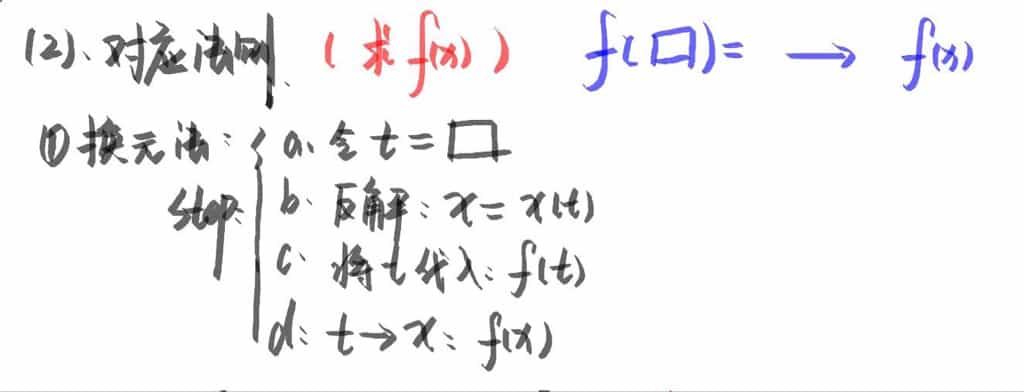 (2)、对应法则. (求f(x)) f(□)= → f(x)
①换元法: { a、令t=□
step: b. 反解: x=x(t)
c. 将t代入: f(t)
d: t→x: f(x)